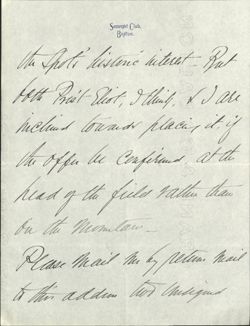 Somerset Club,
Boston.
the Spots' historic interest. But
both Prest Eliot, I think, & I are
inclined towards placing it, if
the offer be confirmed, at the
head of the field rather than
on the Mountain —
Please mail me by return mail
to this address two unsigned